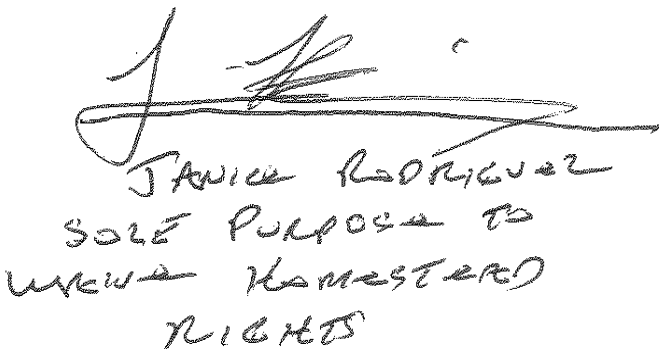 JANICE RODRIGUEZ
SOLE PURPOSE TO
WAIVE HOMESTEAD
RIGHTS